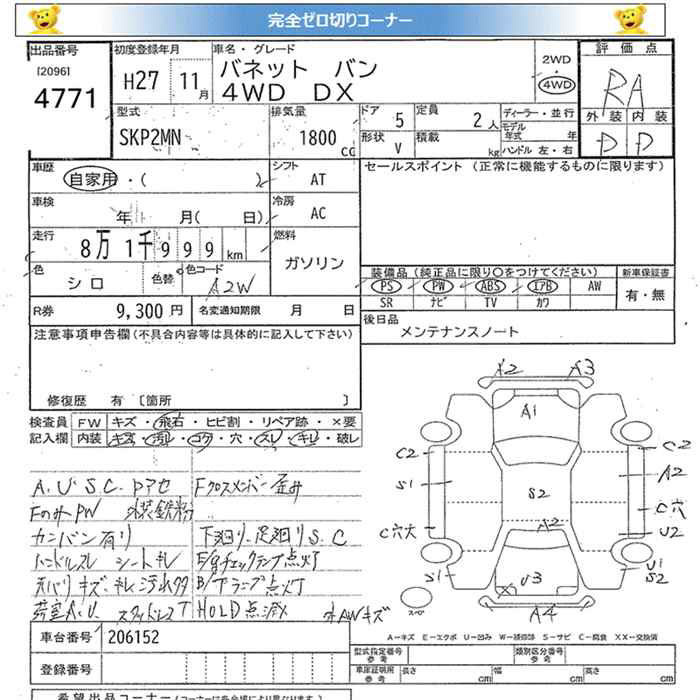 完全ゼロ切りコーナー
出品番号 初度登録年月 車名・グレード 評価点
[20961
4771 H27 11月 バネット バン 2WD
4WD DX 4WD RA
外装 内装
P P
型式 排気量 ドア 5 定員 2人 ディーラー・並行
SKP2MN 1800cc 形状 V 積載 kg モデル年式 年
ハンドル 左・右
車歴 自家用・( ) シフト AT セールスポイント (正常に機能するものに限ります)
車検 年 月( 日) 冷房 AC
走行 8万1千999km 燃料 ガソリン
色 シロ 色替 色コード A2W
装備品(純正品に限り○をつけてください) 新車保証書
PS PW ABS エアB AW 有・無
SR ナビ TV カワ
R券 9,300円 名変通知期限 月 日
後日品 メンテナンスノート
注意事項申告欄(不具合内容等は具体的に記入して下さい)
修復歴 有 〔箇所 〕
検査員 FW キズ・飛石・ヒビ割・リペア跡・×要
記入欄 内装 キズ・汚レ・コゲ・穴・スレ・キレ・破レ
A.U.S.C.Pアセ Fクロスメンバー歪み
カンバン有り 下廻り、足廻りS.C
ハンドルスレ シートキレ E/gチェックランプ点灯
天バリキズ・キレ B/Tランプ点灯
荷室A.U. HOLD点滅 AWキズ
A2 A3
A1
C2 C2
S1 A2
S2
C穴大 C穴
A2 U2
S1 U3 U1
S2
スペア
A4
車台番号 206152
登録番号
A-キズ E-エクボ U-凹み W-補修跡 S-サビ C-腐食 XX-交換済
型式指定番号 参考 類別区分番号 参考
車庫証明用 参考 長さ cm 幅 cm 高さ cm
希望出品コーナー